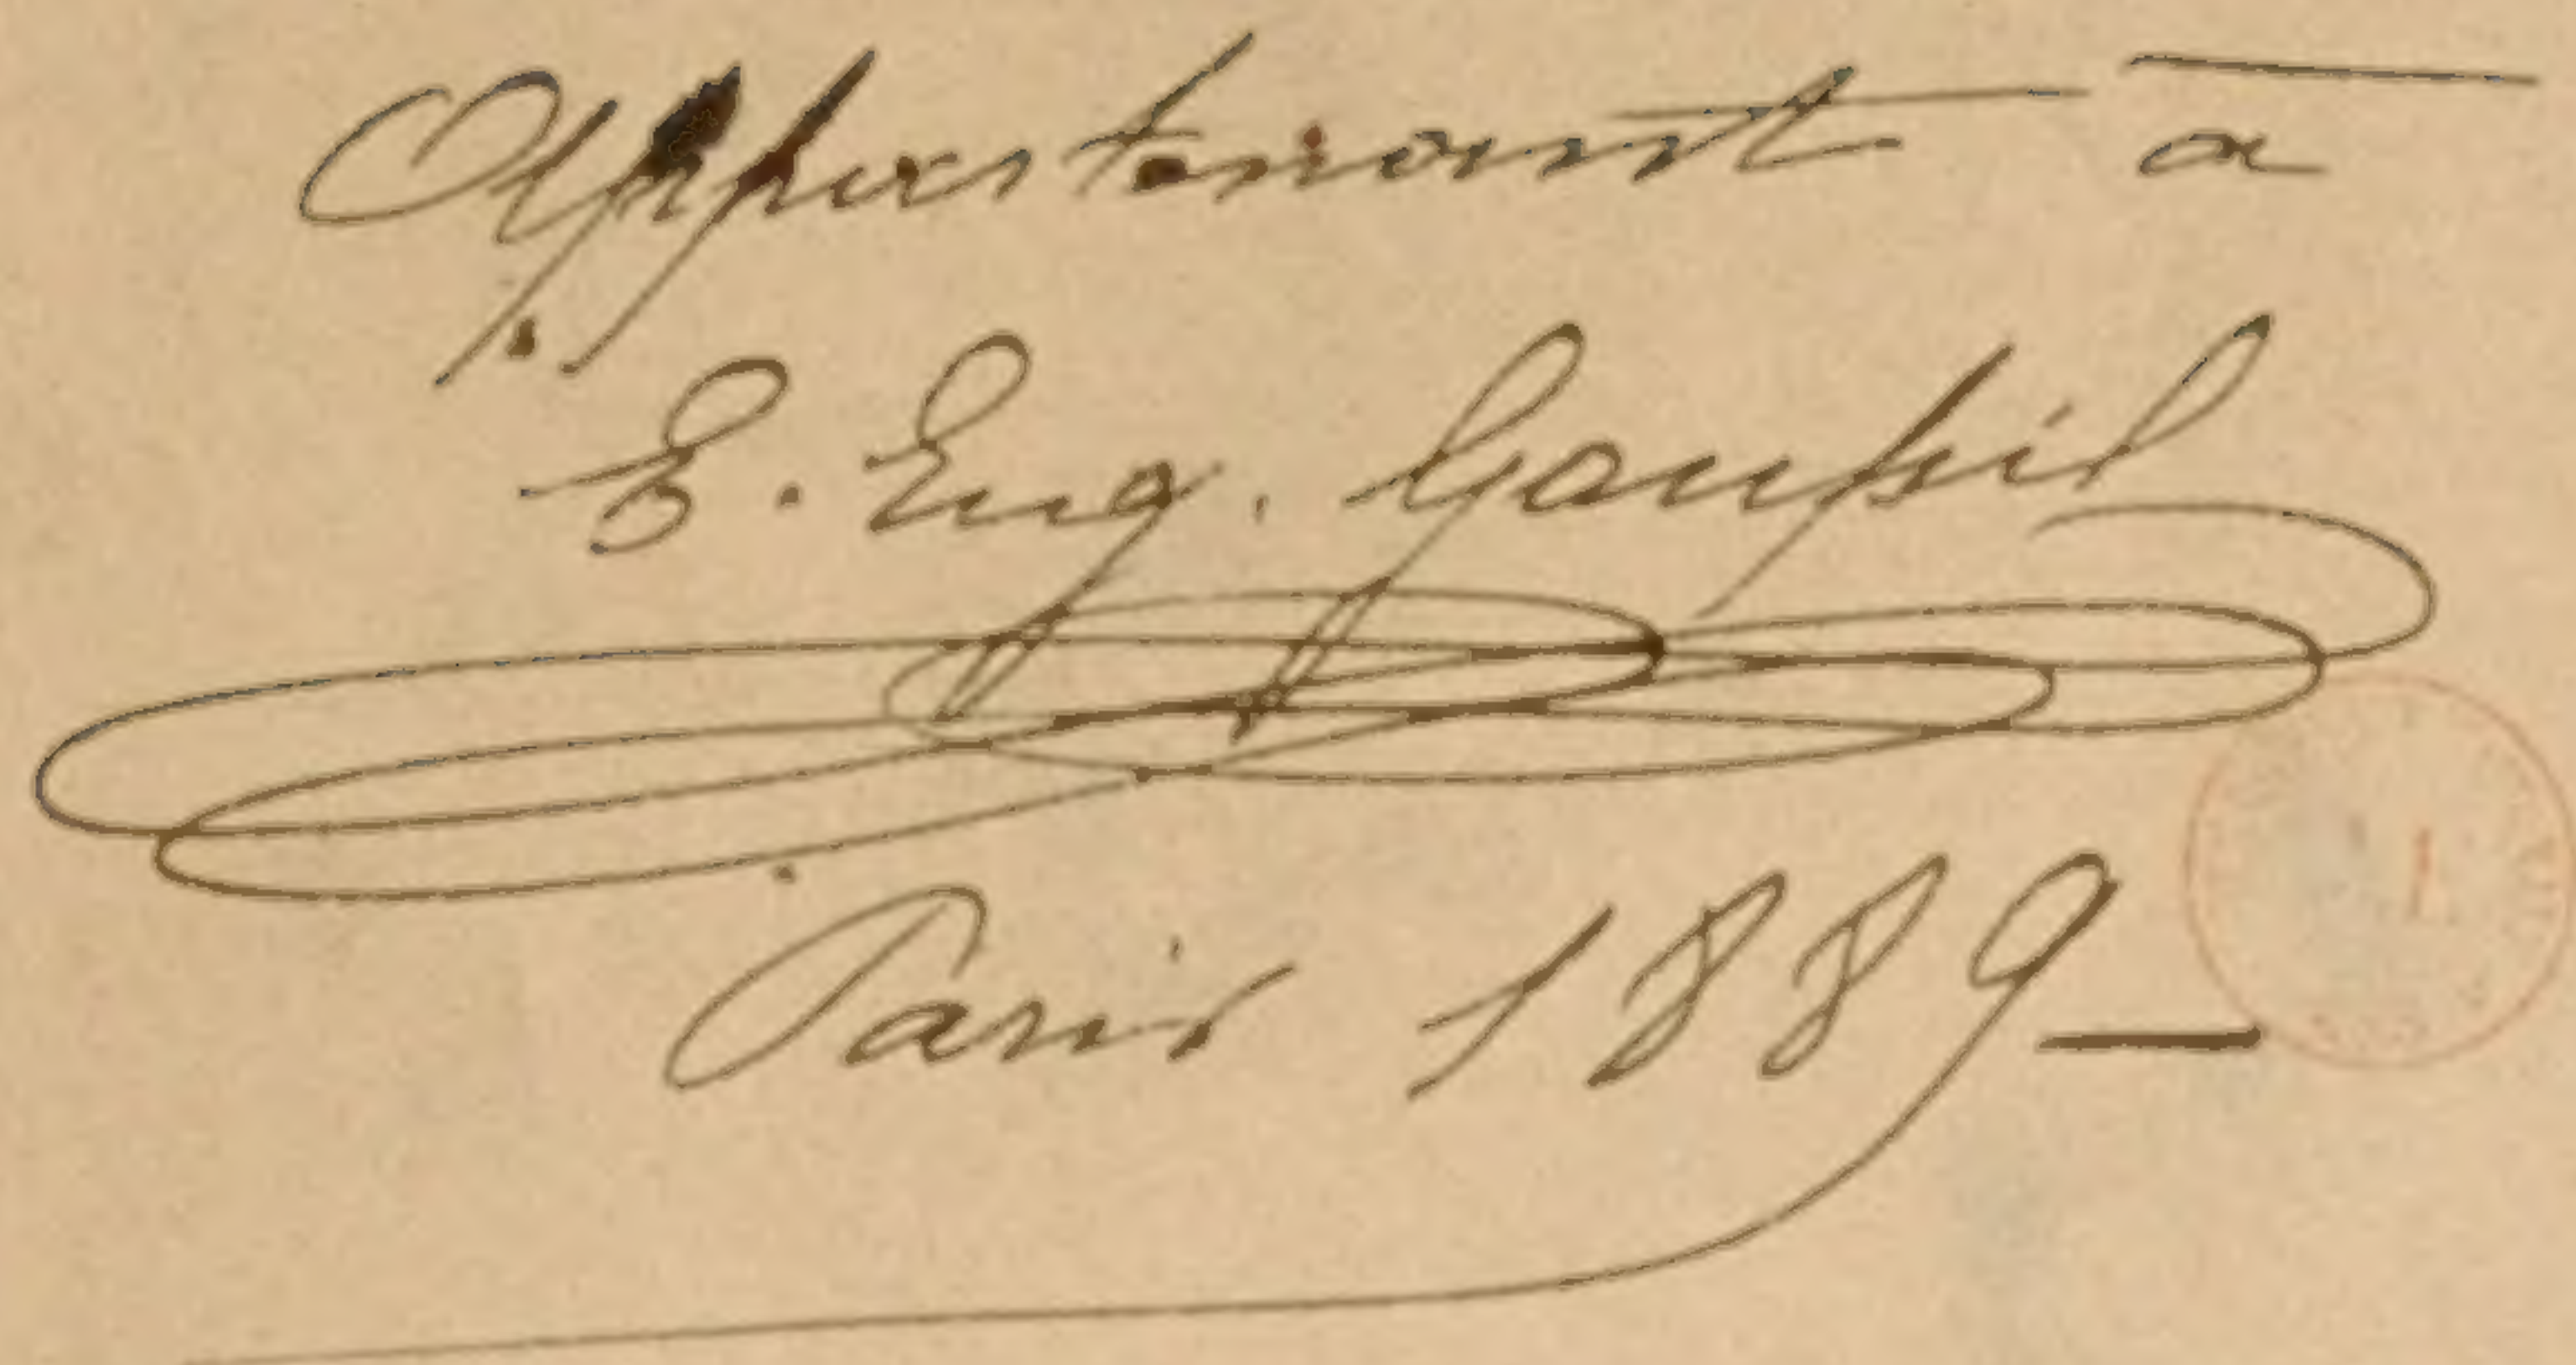 Appartenant a
E. Eug. Goupil
Paris 1889_